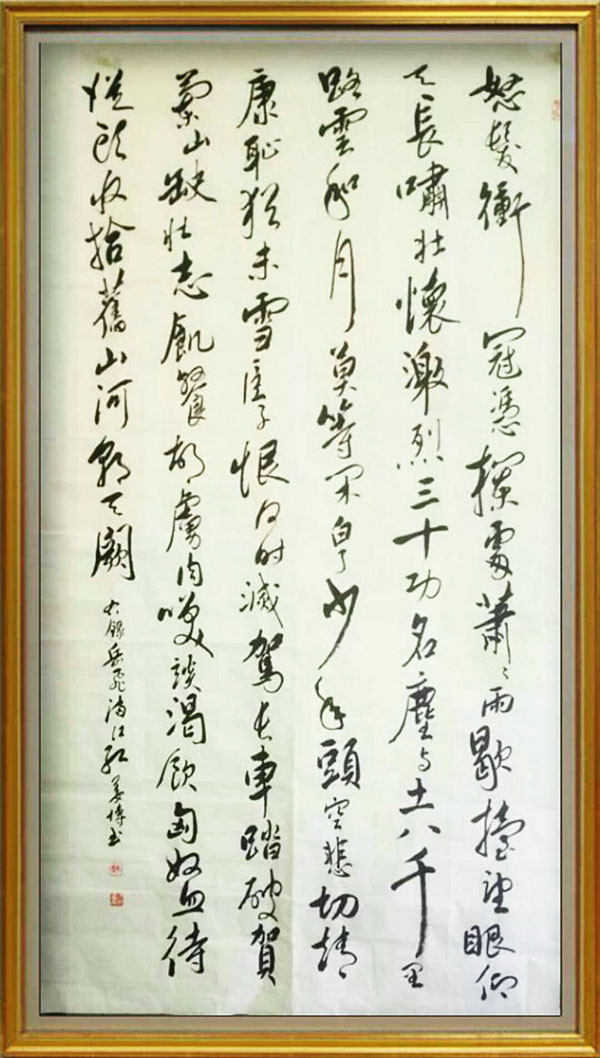 怒髮衝冠憑欄處蕭〻雨歇擡望眼仰
天長嘯壯懷激烈三十功名塵与土八千里
路雲和月莫等閑白了少年頭空悲切靖
康恥猶未雪臣子恨何時滅駕長車踏破賀
蘭山缺壯志飢餐胡虜肉笑談渴飲匈奴血待
從頭收拾舊山河朝天闕
右錄岳飛滿江紅姜博书